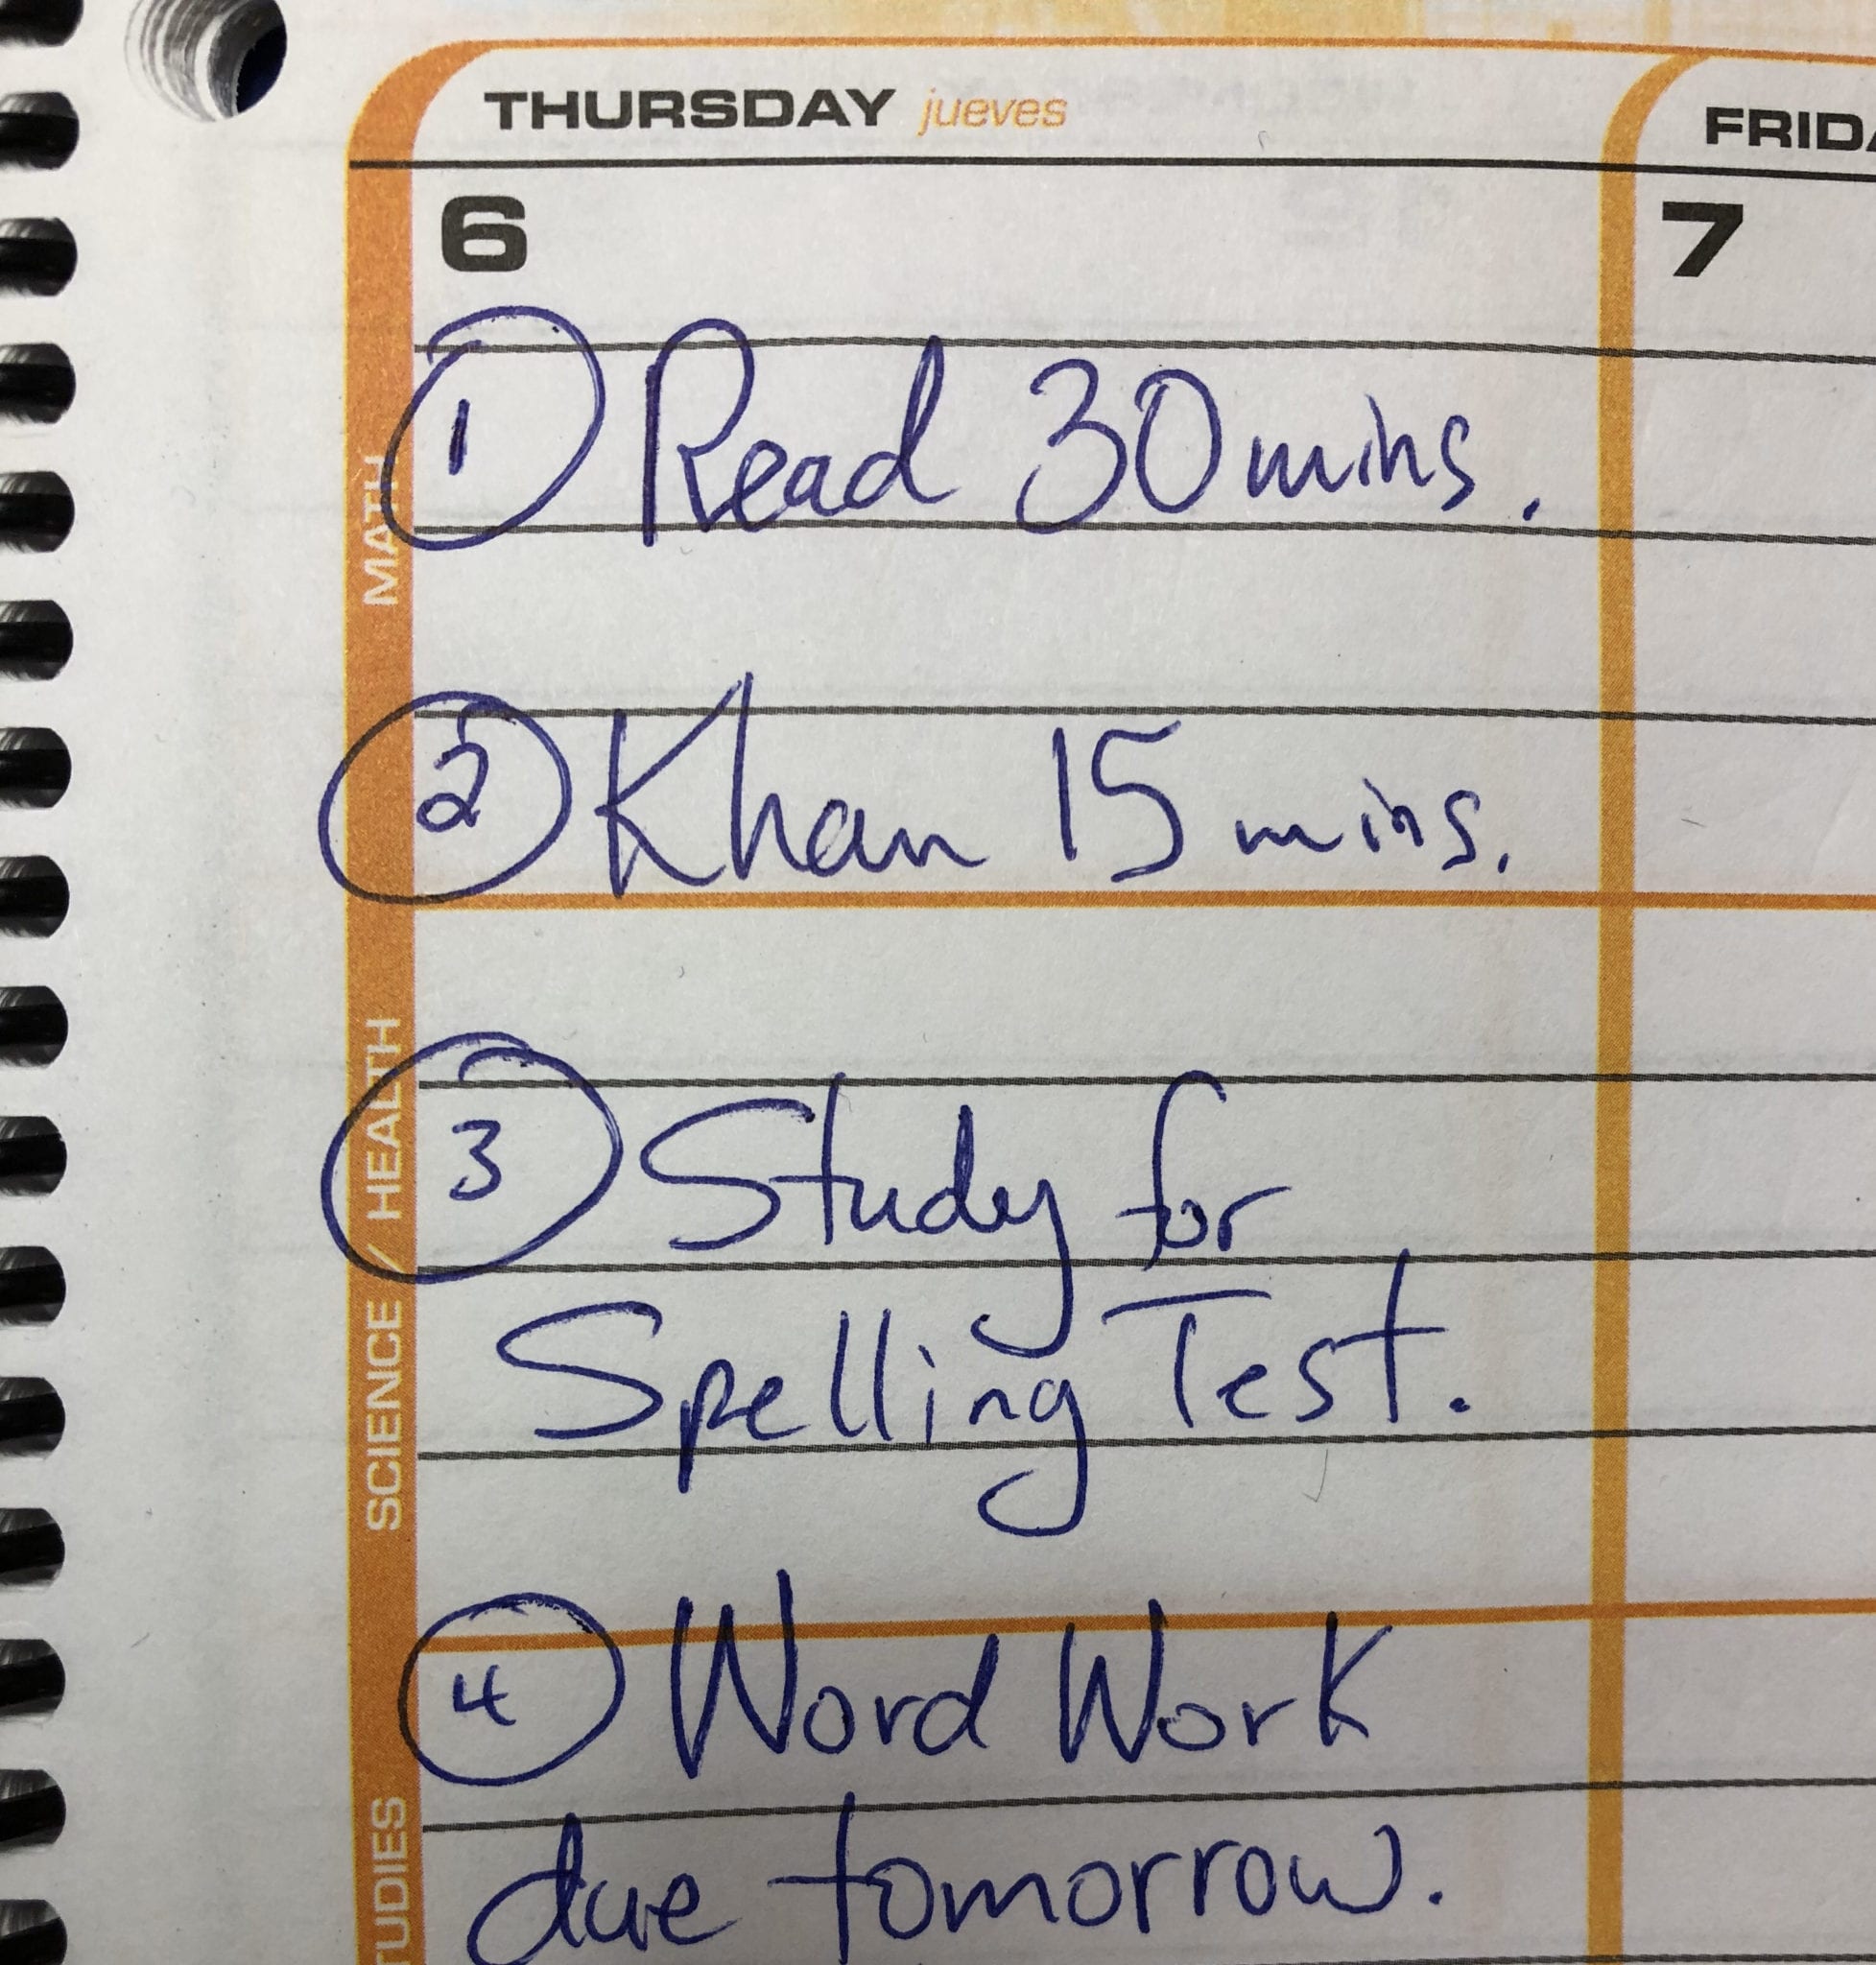 THURSDAY jueves
FRIDA
6
7
MATH
① Read 30 mins.
② Khan 15 mins.
SCIENCE / HEALTH
③ Study for
Spelling Test.
④ Word Work
TUDIES
due tomorrow.